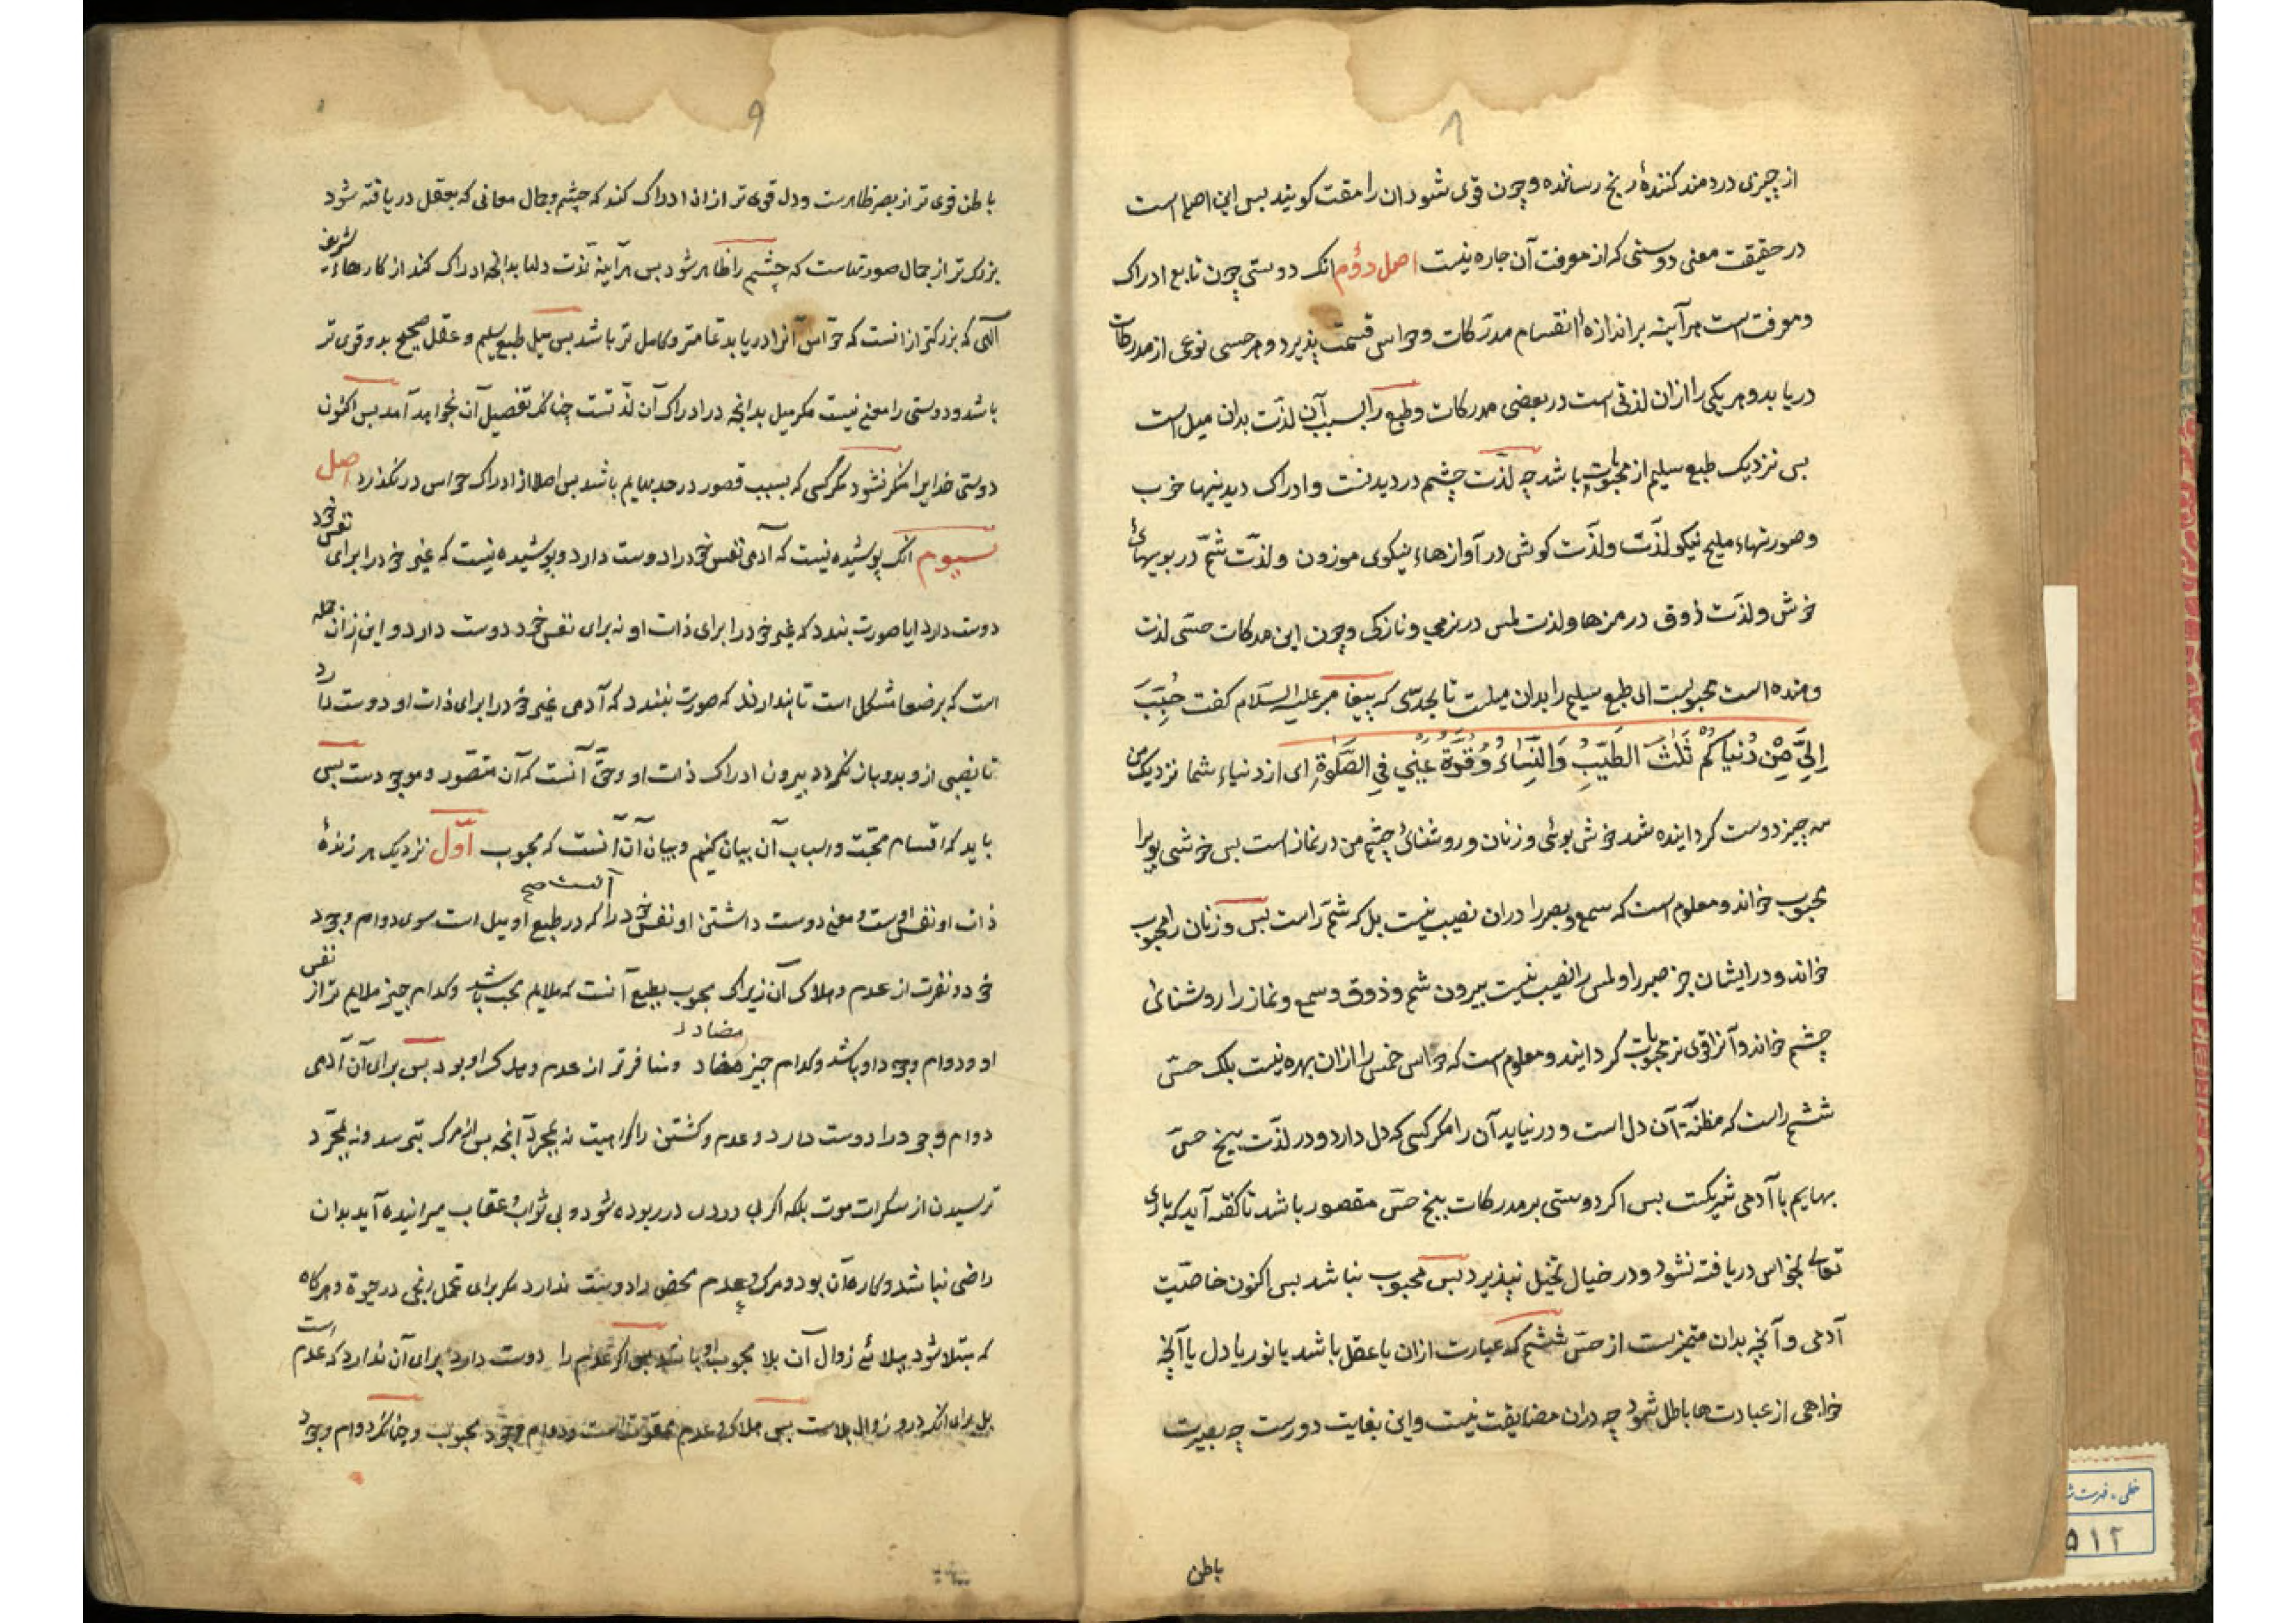 ۸
از چیزی دردمند کنندهٔ رنج رساننده و چون قوی شود ان را مقت کویند بس این اصل است
در حقیقت معنی دوستی که از معرفت آن جاره نیست اصل دوُم انک دوستی چون تابع ادراک
و معرفت است هرآینه بر اندازهٔ انقسام مدرَکات و حواس قسمت پذیرد و هر حسی نوعی از مدرکات
دریابد و هر یکی را ازان لذتی است در بعضی مدرکات و طبع را بسبب آن لذّت بدان میل است
بس نزدیک طبع سلیم از محبوبات باشد چه لذّت چشم در دیدنست و ادراک دیدنیهاء خوب
و صورتهاء ملیح نیکو لذّت و لذّت کوش در آوازهاء نیکوی موزون و لذّت شمّ در بویهائ
خوش و لذّت ذوق در مزها و لذت لمس در نرمی و نازکی و چون این مدرکات حسّی لذت
دهنده است محبوبست ای طبع سلیم را بدان میلست تا بحدّی که پیغامبر علیه السّلام کفت حُبِّبَ
اِلَیَّ مِنْ دُنیاکُم ثَلٰثٌ الطّیّبُ وَالنِّسَاءُ وَقُرَّةُ عَیْنِی فِی الصَّلٰوةِ ای از دنیاءِ شما نزدیک من
سه چیز دوست کردانیده شد خوش بوئی و زنان و روشنائی چشم من در نماز است بس خوش بوی را
محبوب خواند و معلوم است که سمع و بصر را دران نصیب نیست بل که شمّ راست بس و زنان را محبوب
خواند و در ایشان جز بصر را و لمس را نصیب نیست بیرون شم و ذوق و سمع و نماز را روشنائی
چشم خواند و آنرا قوی تر محبوبات کردانید و معلوم است که حواس خمس را ازان بهره نیست بلک حسّ
ششم راست که مظنّهٔ آن دل است و در نیابد آن را مکر کسی که دل دارد و در لذّت پنج حسّ
بهایم با آدمی شریکست بس اکر دوستی بر مدرکات پنج حسّ مقصور باشد تا کفته آید که باری
تعالی بحواس دریافته نشود و در خیال تخیّل نپذیرد بس محبوب نباشد بس اکنون خاصیّت
آدمی و آنچه بدان متمیز ست از حسّ ششم که عبارت ازان یا عقل باشد یا نور یا دل یا آنچ
خواهی از عبادت ها باطل شود چه دران مضایقت نیست و این بغایت دورست چه بصیرت
باطن
۹
باطن قوی تر از بصر ظاهرست و دل قوی تر از انا ادراک کند که چشم و جمال معانی که بعقل دریافته شود
بزرک تر از جمال صورتهاست که چشم را ظاهر شود بس هرآینه لذّت دلها بدانچه ادراک کند از کارهاءِ شریف
الٓهی که بزرکتر ازانست که حوّاس آنرا دریابد تمامتر و کامل تر باشد بس میل طبع سلیم و عقل صحیح بدو قوی تر
باشد و دوستی را معنی نیست مکر میل بدانچه در ادراک آن لذّتست چنانکه تفصیل آن بخواهد آمد بس اکنون
دوستی خدایرا منکر نشود مکر کسی که بسبب قصور در حد بهایم باشد بس اصلا از ادراک حواس در نکذرد اصل
سیوم انک پوشیده نیست که آدمی نفس خود را دوست دارد و پوشیده نیست که غیر خود را برای نفس خود
دوست دارد ایا صورت بندد که غیر خود را برای ذات او نه برای نفس خود دوست دارد و این ازان جمله
است که بر ضعفا مشکل است تا پندارند که صورت نبندد که آدمی غیر خود را برای ذات او دوست دارد
تا نصیبی ازو بدو باز نکردد بیرون ادراک ذات او و حقّ آنست که آن متصّور و موجودست بس
باید که اقسام محبّت و اسباب آن بیان کنیم و بیان آن آنست که محبوب اوّل نزدیک هر زندهٔ
ذات او نفس اوست و معنی دوست داشتن او نفس خود را آنست صح که در طبع او میل است سوی دوام وجود
خود و نفرت از عدم و هلاک آن زیراک محبوب بطبع آنست که ملایم محب باشد و کدام چیز ملایم تر از نفس
او و دوام وجود او باشد و کدام چیز مضاد مضادتر و منافرتر از عدم و هلاک او بود بس برای آن آدمی
دوام وجود را دوست دارد و عدم و کشتن را کراهیت نه بمجرّد آنچه بس از مرک بترسد و نه بمجرّد
ترسیدن از سکرات موت بلکه اکر بی دردی در ربوده شود و بی ثواب و عقاب میرانیده آید بدان
راضی نباشد و کاره آن بود و مرک و عدم محض را دوست ندارد مکر برای تحمل رنجی در حیوة و هرکاه
که مبتلا شود ببلائے زوال آن بلا محبوب او باشد بس اکر عدم را دوست دارد برای آن ندارد که عدم است
بل برای انکه درو زوال بلاست بس هلاک و عدم ممقوت است و دوام وجود محبوب و چنانکه دوام وجود
خطی - فهرست ش
۵۱۲